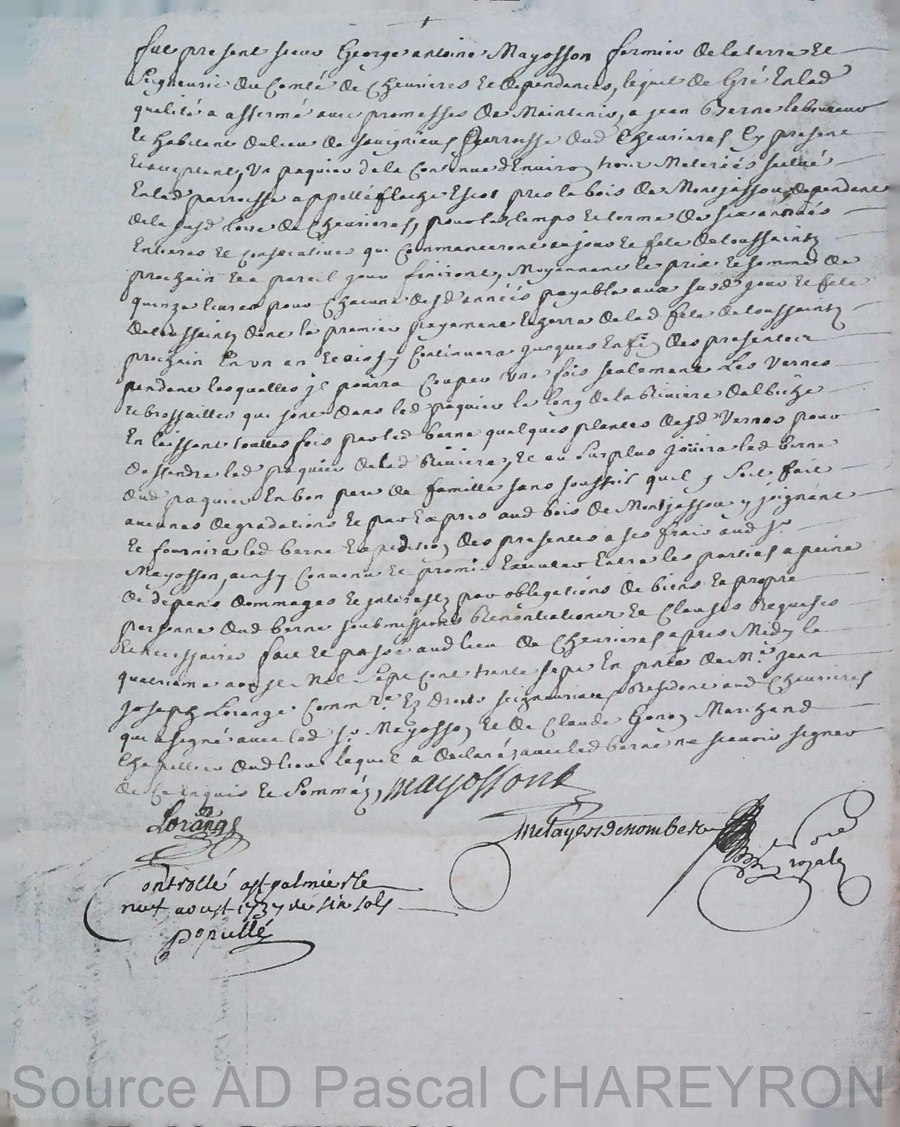 fut present sieur George antoine Mayosson fermier de la terre et
Seigneurie du Comté de Cheurieres et dependances, lequel de Gré En lad
qualité a affermé avec promesses de Maintenir, a jean Berne laboureur
et habitant du lieu de Parroisse dud Cheurieres Cy present
et acceptant, Un paquier de la Contenue d'Environ trois Meterées scitué
En lad parroisse appellé pres le bois de Montjassou dependant
de la susd terre de Cheurieres, pour le temps et terme de six années
Entieres et Consecutives qui Commanceront au jour et fete de toussaintz
prochain et a pareil jour finiront, Moyennant le prix et somme de
quinze livres pour Chacune desd années payable aux susd jour et fete
de toussaintz dont le premier payement Echerra de lad fete de toussaintz
prochain En un an et ainsy Continuera jusques En fin des presentes
pendant lesquelles jl pourra Couper Une fois seulement Les Vernes
et brossailles qui sont dans led paquier le long de la Riviere
En laissant touttes fois par led berne quelques plantes desd Vernes pour
deffendre led paquier de lad Riviere, Et au surplus jouira led berne
dud paquier En bon pere de famille sans souffrir quil y soit fait
aucunes degradations et par Expres aud bois de Montjassou y joignant
Et fournira led berne Expedition des presentes a ses frais aud sr
Mayosson, ainsy Convenu et promis Executer Entre les parties a peine
de depens dommages et interestz par obligations de biens et propre
personne dud berne soubmissions Renontiations et Clauses Requises
et necessaires fait et passé aud lieu de Cheurieres apres Midy le
quatrieme aoust Mil sept Cent trente sept En pnce de Mr jean
joseph Lorange Commre Ez droits seigneuriaux Resident aud Cheurieres
qui a signé avec led sr Mayosson et de Claude Marchand
Chapellier dud lieu lequel a declaré avec led berne ne scavoir signer
de Ce Enquis et sommés, Mayosson
Lorange
royale
Controllé a st palmier le
neuf aoust 1737 de six sols
Populle
Source AD Pascal CHAREYRON